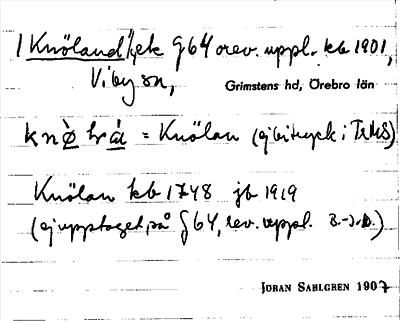 /Knöland/ lyck § 64 orev. uppl. kb 1901,
Viby sn, Grimstens hd, Örebro län
knö̀ hrál = Knölan (ej bitryck i TrMS)
Knölan kb 1748 jb 1919
(ej upptaget på § 64, rev. uppl. B.-J.D.)
JÖRAN SAHLGREN 1907